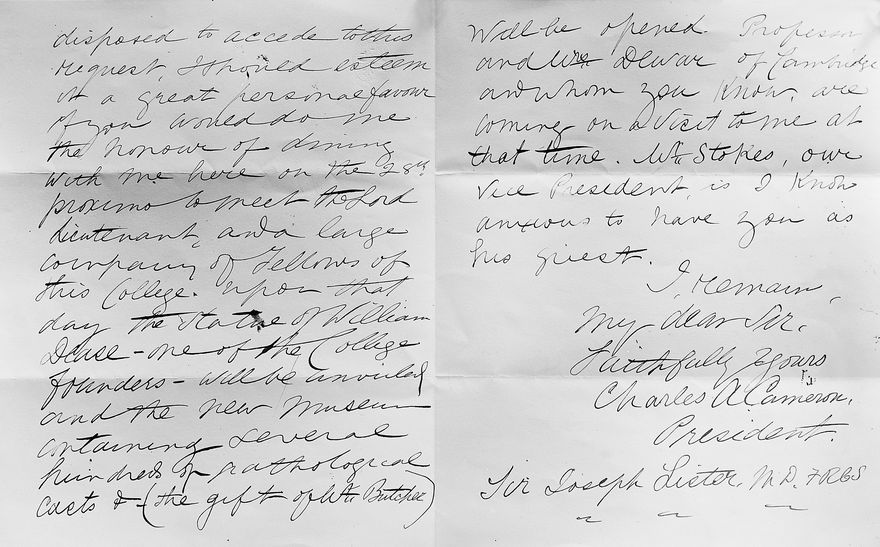 disposed to accede to this
request, I should esteem
it a great personal favour
if you would do me
the honour of dining
with me here on the 28th
proximo to meet the Lord
Lieutenant, and a large
company of Fellows of
this College. Upon that
day the Statue of William
Dease - one of the College
founders - will be unveiled
and the new Museum
containing several
hundreds of pathological
casts & - (the gift of Mr Butcher)
will be opened. Professor
and Mrs Dewar of Cambridge
and whom you know, are
coming on a visit to me at
that time. Mr Stokes, our
Vice President, is I know
anxious to have you as
his guest.
I, remain,
My dear Sir,
Faithfully yours
Charles A. Cameron,
President.
Sir Joseph Lister, M.D., FRCS